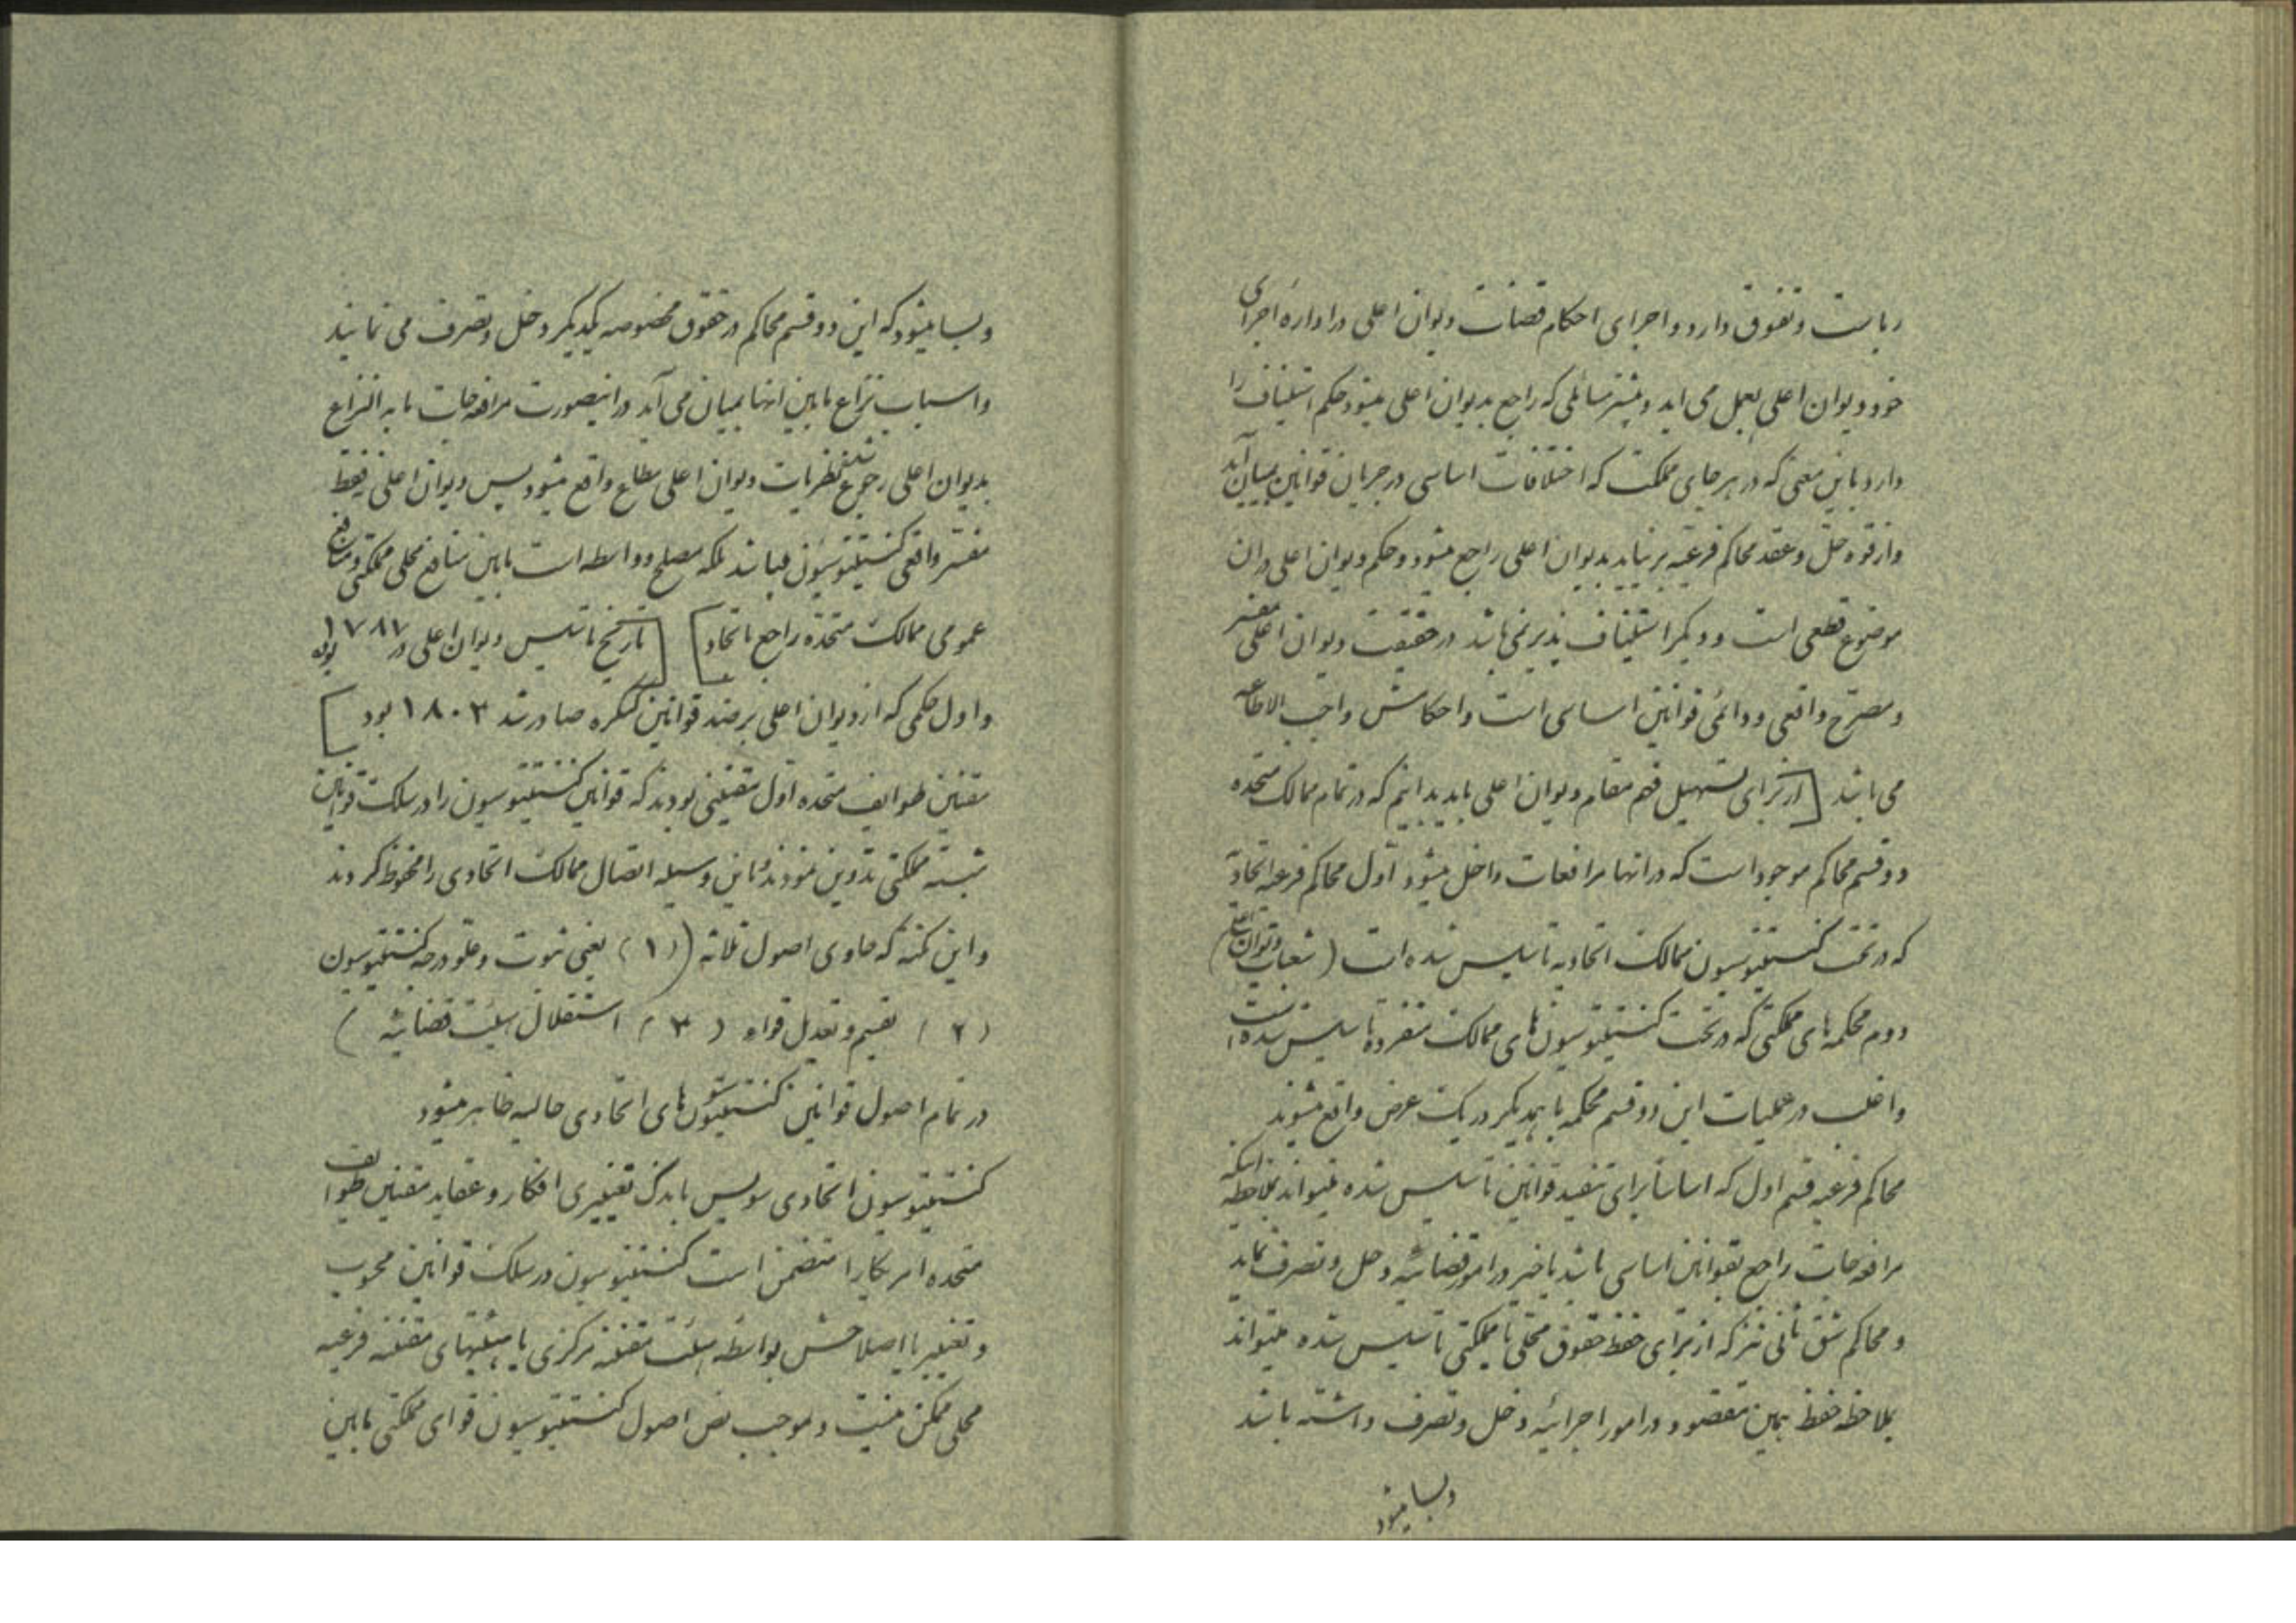 ریاست و تفوق دارد و اجرای احکام قضات دیوان اعلی در اداره اجرای
خود دیوان اعلی بعمل می اید و بیشتر مسائلی که راجع بدیوان اعلی میشود حکم استیناف را
دارد باین معنی که در هر جای مملکت که اختلافات اساسی در جریان قوانین بمیان آید
و از قوه حل و عقد محاکم فرعیه بر نیاید بدیوان اعلی راجع میشود و حکم دیوان اعلی در ان
موضوع قطعی است و دیگر استیناف پذیر نمی باشد در حقیقت دیوان اعلی مفسر
و مصرح واقعی و دائمی قوانین اساسی است و احکامش واجب الاطاعه
می باشد [از برای تسهیل فهم مقام دیوان اعلی باید بدانیم که در تمام ممالک متحده
دو قسم محاکم موجود است که در انها مرافعات داخل میشود اول محاکم فرعیه اتحادی
که در تحت کنستیتوسیون ممالک اتحادیه تاسیس شده است (شعبات دیوان اعلی)
دوم محکمه های مملکتی که در تحت کنستیتوسیون های ممالک منفرده تاسیس شده است
و اغلب در عملیات این دو قسم محکمه با همدیگر در یک عرض واقع میشوند
محاکم فرعیه قسم اول که اساسا برای تنفید قوانین تاسیس شده میتواند بملاحظه اینکه
مرافعه جات راجع بقوانین اساسی باشد یا خیر در امور قضائیه دخل و تصرف نماید
و محاکم شق ثانی نیز که از برای حفظ حقوق محلی یا مملکتی تاسیس شده میتواند
بملاحظه حفظ همین مقصود در امور اجرائیه دخل و تصرف داشته باشد
و بسا میشود
و بسا میشود که این دو قسم محاکم در حقوق مخصوصه یکدیگر دخل و تصرف می نمایند
و اسباب نزاع مابین انها بمیان می آید در اینصورت مرافعه جات ما به النزاع
بدیوان اعلی رجوع شده نظریات دیوان اعلی مطاع واقع میشود پس دیوان اعلی نه فقط
مفسر واقعی کنستیتوسیون میباشد بلکه مصلح و واسطه است مابین منافع محلی مملکتی و منافع
عمومی ممالک متحده راجع باتحاد] [تاریخ تاسیس دیوان اعلی در ۱۷۸۷ بوده
و اول حکمی که از دیوان اعلی بر ضد قوانین کنگره صادر شد ۱۸۰۳ بود]
مقننین طوایف متحده اول مقننینی بودند که قوانین کنستیتوسیون را در سلک قوانین
مثبته مملکتی تدوین نمودند باین وسیله اتصال ممالک اتحادی را محفوظ کردند
و این نکته که حاوی اصول ثلاثه ((۱) یعنی ثبوت و علو درجه کنستیتوسیون
(۲) تقسیم و تعدیل قواء (۳) استقلال هیئت قضائیه)
در تمام اصول قوانین کنستیتیوشن های اتحادی حالیه ظاهر میشود
کنستیتوسیون اتحادی سویس باندک تغییری افکار و عقاید مقننین طوایف
متحده امریکا را متضمن است کنستیتوسیون در سلک قوانین محسوب
و تغییر یا اصلاحش بواسطه هیئت مقننه مرکزی یا هیئتهای مقننه فرعیه
محلی ممکن نیست و بموجب نص اصول کنستیتوسیون قوای مملکتی مابین